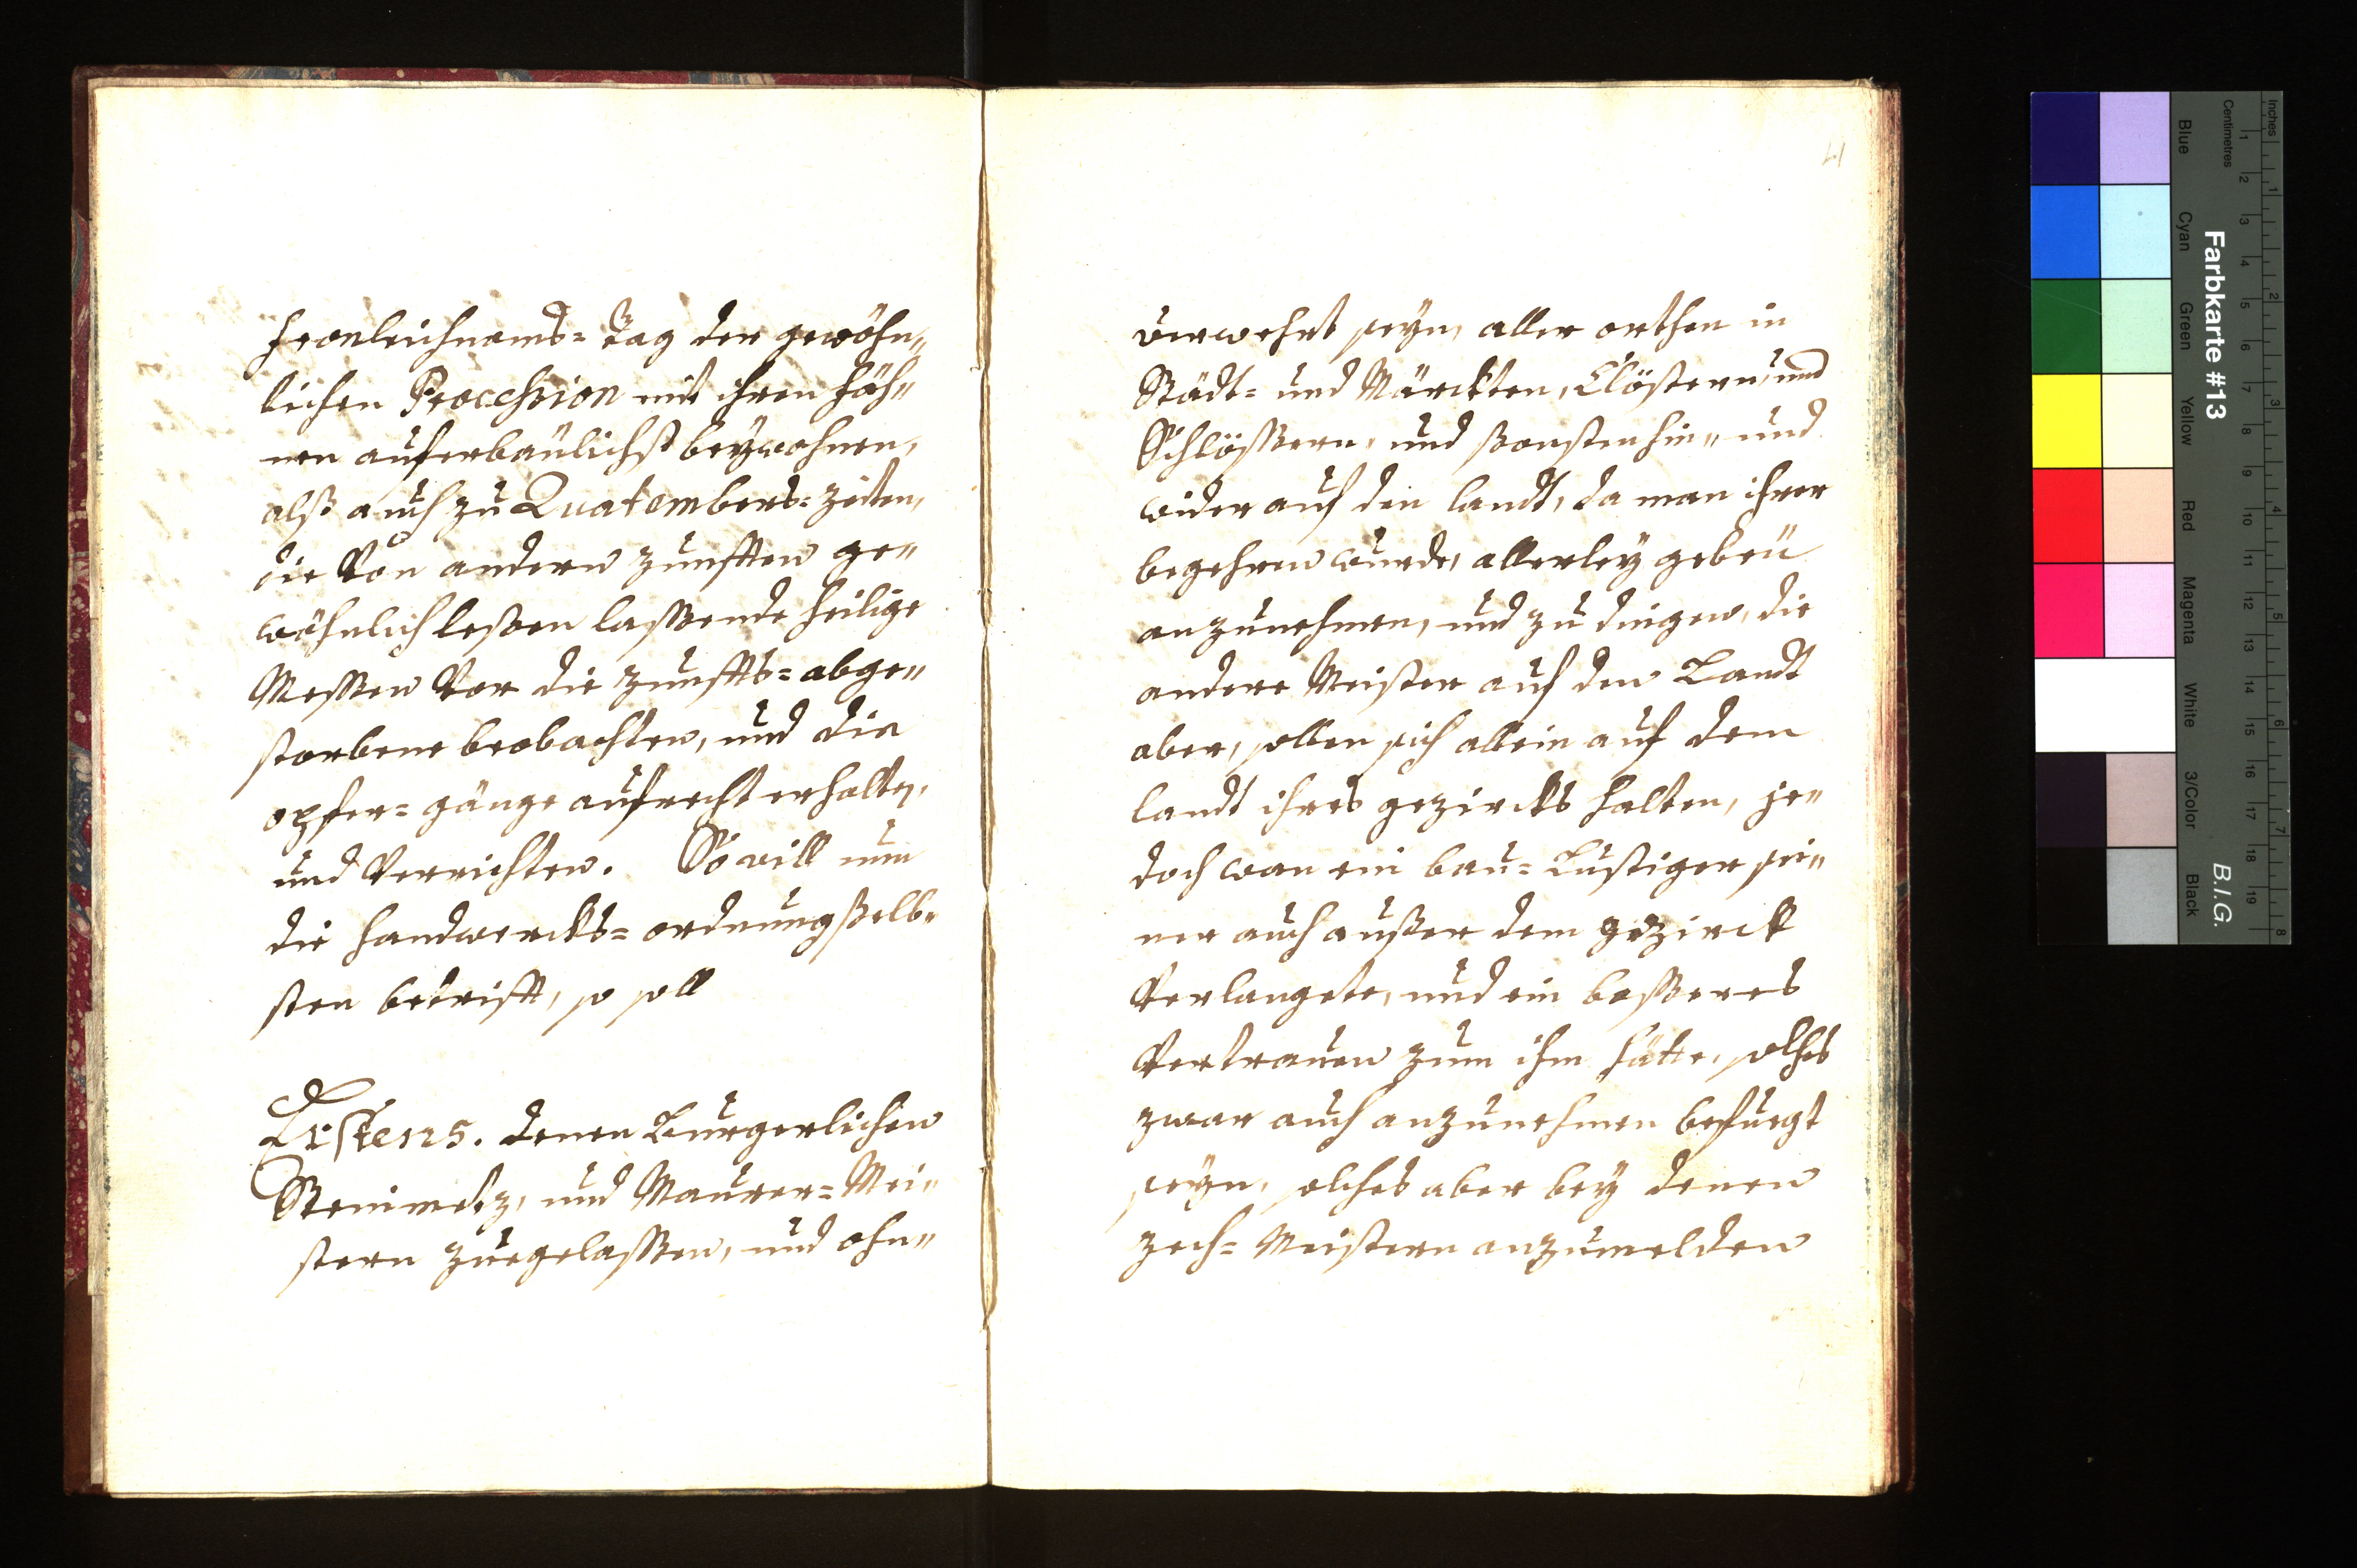 fronleichnams= Tag der gewöhn„
lichen Procession mit ihren fäh„
nen auferbaulichst beywohnen,
alß auch zu Quatembers= zeiten,
die Von andern zunfften ge„
wöhnlich leßen lassende heilige
Messen Vor die zunffts= abge„
storbene beobachten, und die
opfer= gänge aufrecht erhalten,
und Verrichten. So will nun
die handwercks= ordnung ßelb„
sten betrifft, so soll
Erstens. denen Burgerlichen
Steinmetz, und Maurer= Mei„
stern zuegelassen, und ohn„
41
verwehrt seyn, aller orthen in
Städt= und Märckten, Clöstern, und
Schlössern, und ßonsten hin„ und
wider auf den landt, da man ihrer
begehren wurde, allerley gebeü
anzunehmen, und zu dingen, die
andere Meister auf den Landt
aber, sollen sich allein auf dem
landt ihres gezircks halten, je„
doch wan ein bau= Lustiger sei„
ner auch außer dem gezirck
Verlangete, und ein besseres
Vertrauen zum ihm hätte, solches
zwar auch anzunehmen befuegt
seyn, solches aber bey denen
zech= Meistern anzumelden
Inches
Centimetres
Farbkarte #13
B.I.G.
Blue
Cyan
Green
Yellow
Red
Magenta
White
3/Color
Black
1 2 3 4 5 6 7 8
1 2 3 4 5 6 7 8 9 10 11 12 13 14 15 16 17 18 19